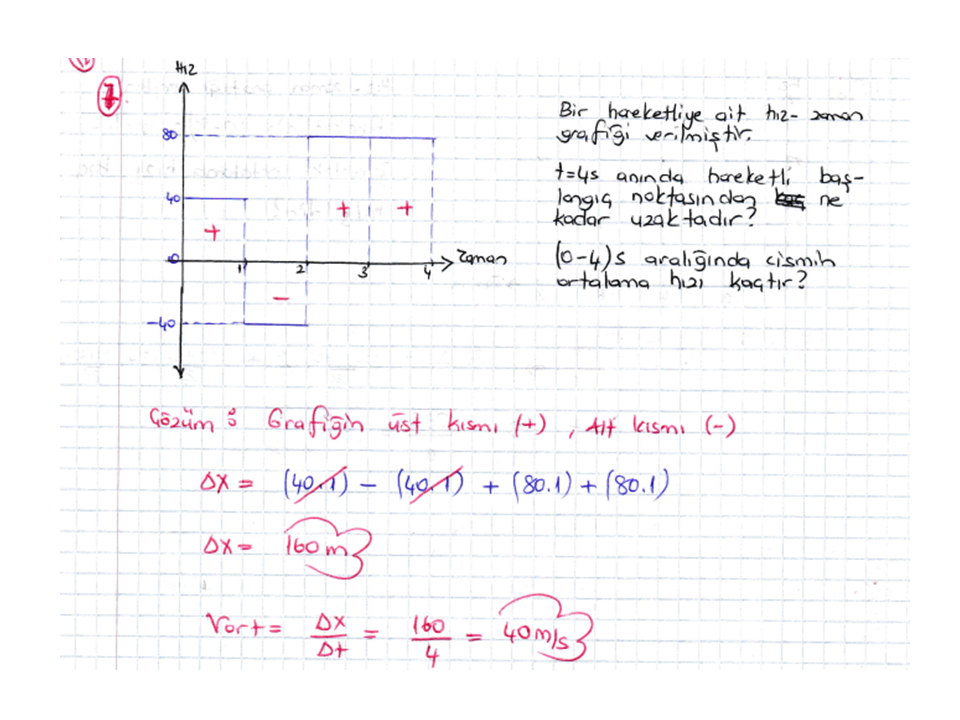 7
Hız
80
40
0
-40
1 2 3 4 Zaman
+ - + +
Bir hareketliye ait hız-zaman
grafiği verilmiştir.
t=4s anında hareketli baş-
langıç noktasından ne
kadar uzaktadır?
(0-4)s aralığında cismin
ortalama hızı kaçtır?
Çözüm : Grafiğin üst kısmı (+), Alt kısmı (-)
ΔX = (40.1) - (40.1) + (80.1) + (80.1)
ΔX = 160m
Vort = ΔX/Δt = 160/4 = 40m/s